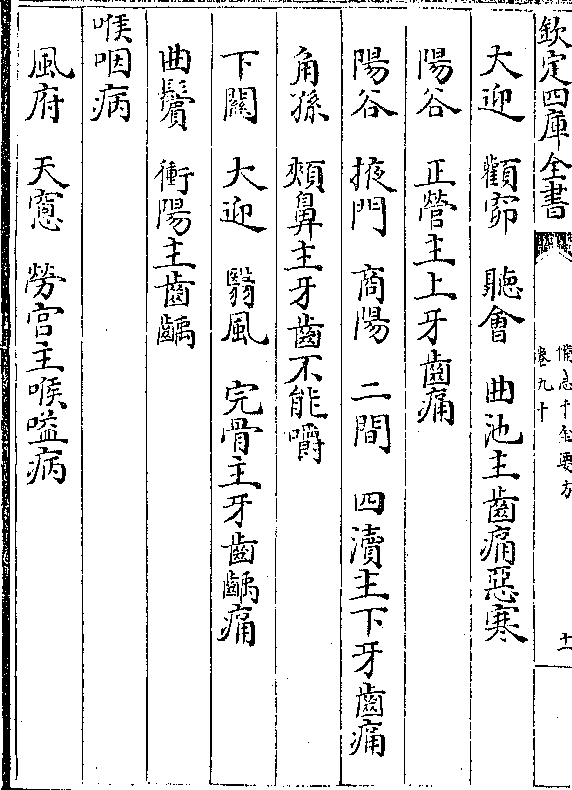 欽定四庫全書
備急千金要方
卷九十
十一
大迎 顴窌 聽會 曲池主齒痛惡寒
陽谷 正營主上牙齒痛
陽谷 掖門 商陽 二間 四瀆主下牙齒痛
角孫 頰鼻主牙齒不能嚼
下關 大迎 翳風 完骨主牙齒齲痛
曲鬢 衝陽主齒齲
喉咽病
風府 天窻 勞宮主喉嗌病